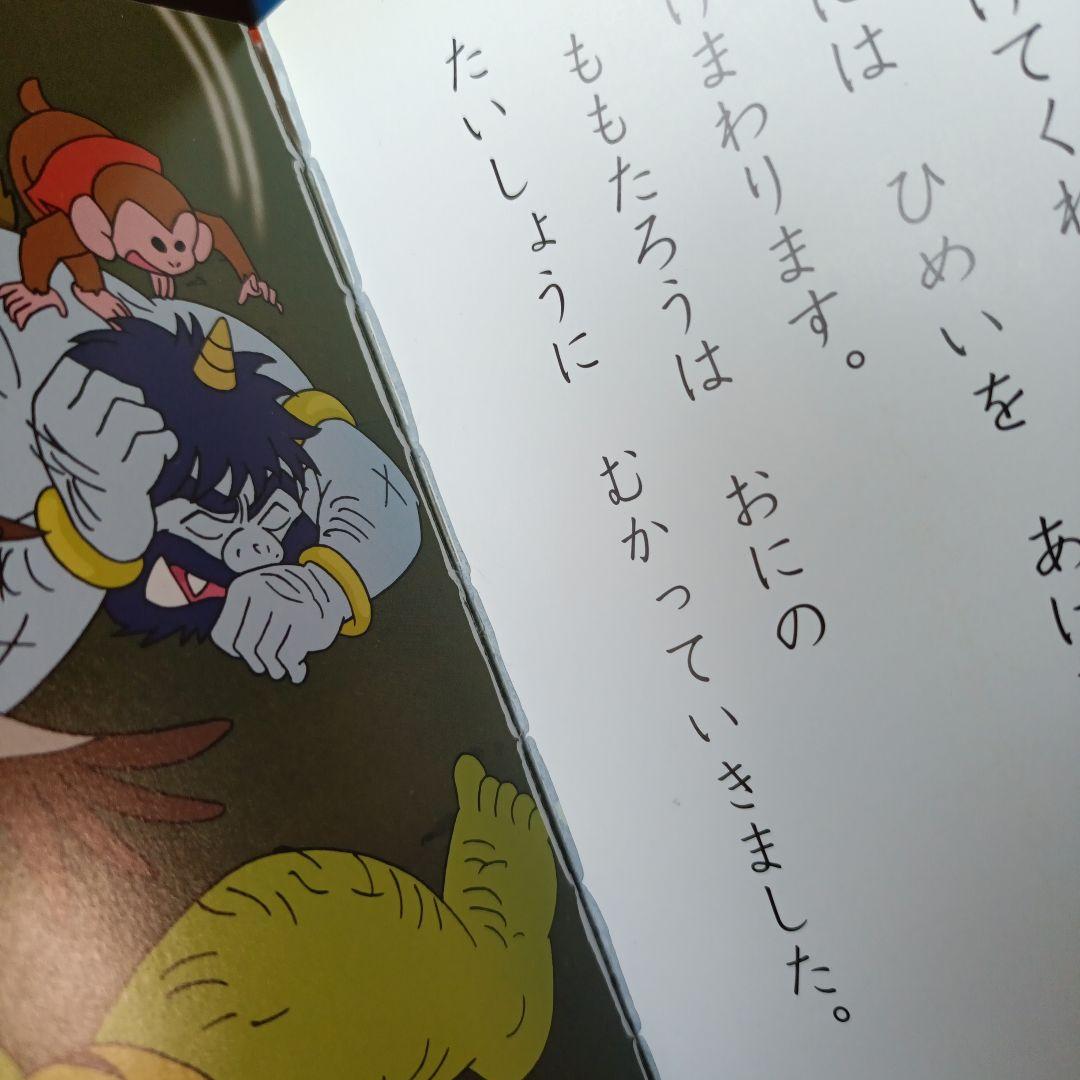 てくれ
あ
には ひめいを
まわります。
ももたろうは おにの
たいしょうに むかっていきました。